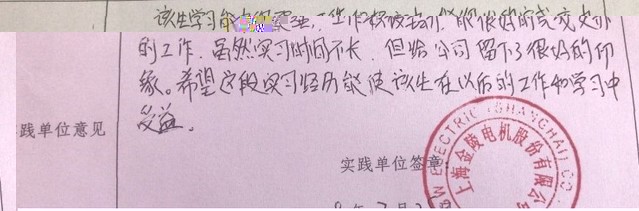 该生学习能力很强，工作积极主动，能很好的完成交办
的工作。虽然实习时间不长，但给公司留下了很好的印
象。希望这段实习经历能使该生在以后的工作和学习中
受益。
实践单位意见
实践单位签章：
上海金陵电机股份有限公司
ELECTRIC (SHANGHAI) CO